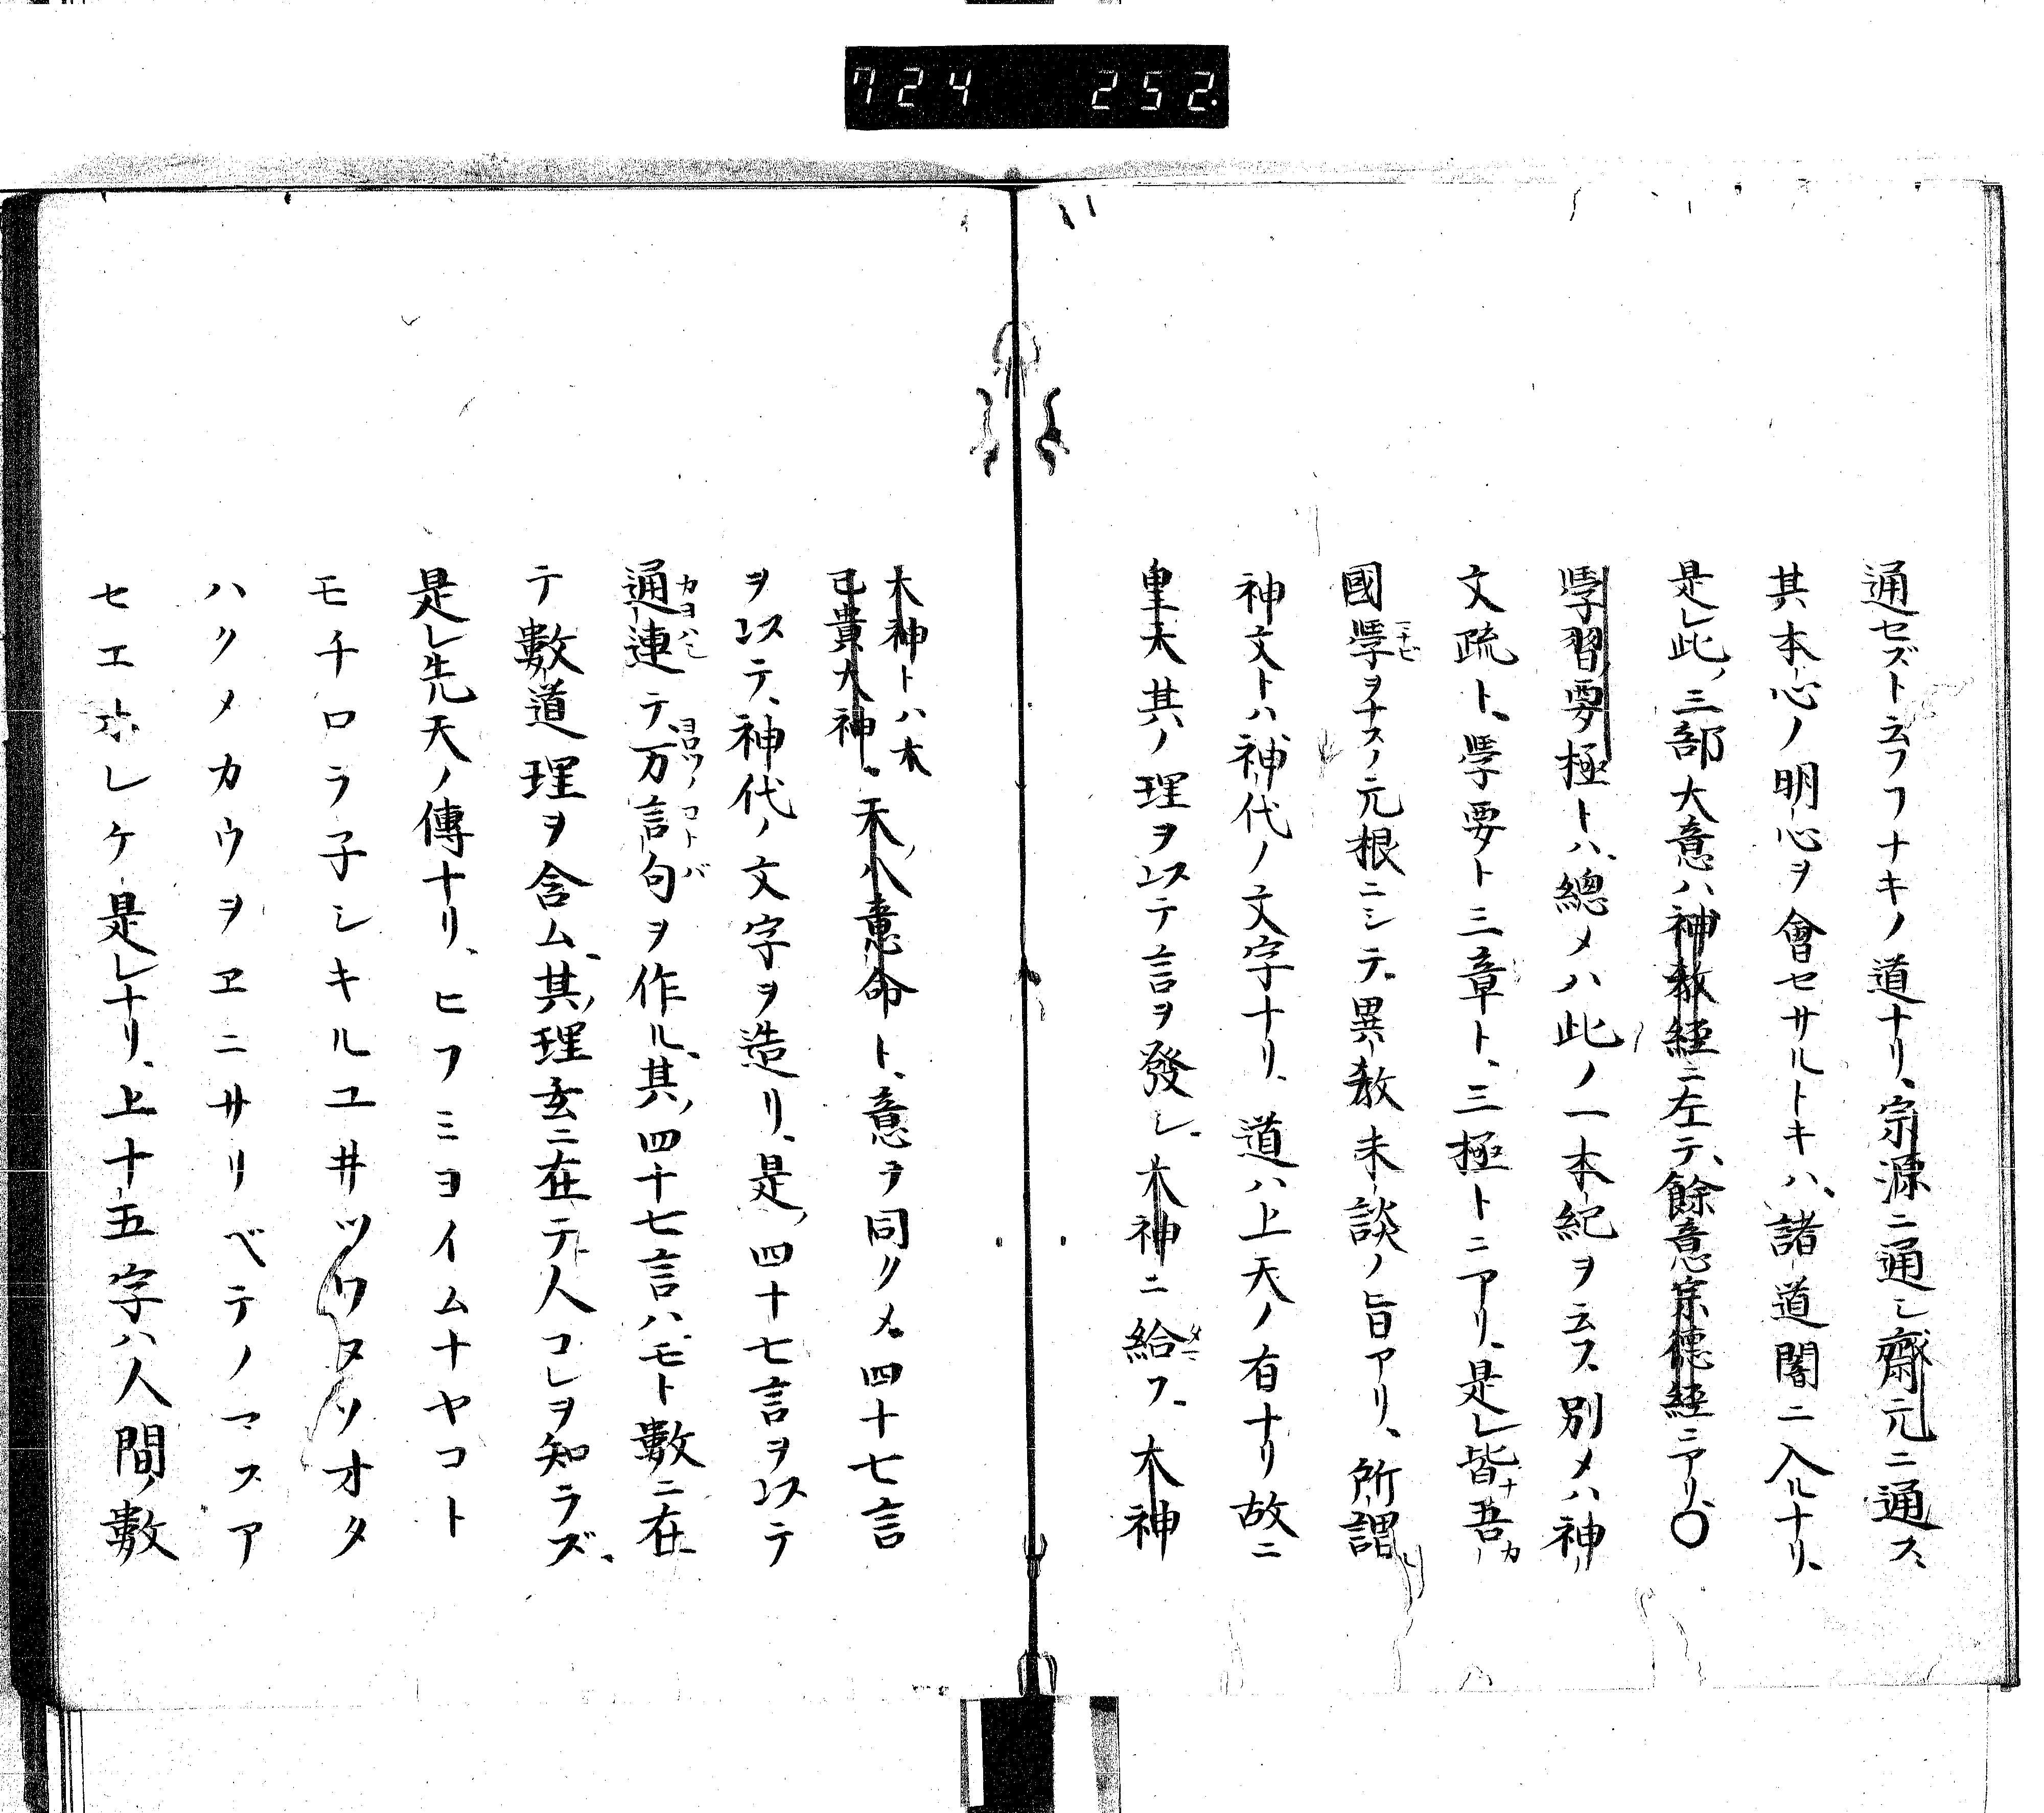 724 252.
通セズト云フフナキノ道ナリ、宗源ニ通シ齋元ニ通ス
其本心ノ明心ヲ會セサルトキハ、諸道闇ニ入ルナリ、
是レ此ノ三部大意ハ神教經ニ左テ、餘意宗德經ニアリ、〇
學習要極トハ、總メハ此ノ一本紀ヲ云ス、別メハ神
文疏ト、學要ト三章ト、三極トニアリ、是レ皆ナ吾カ
國學ヲナスノ元根ニシテ、異教未談ノ旨アリ、所謂
神文トハ、神代ノ文字ナリ、道ハ上天ノ有ナリ故ニ
皇天其ノ理ヲ以テ言ヲ發シ、大神ニ給フ、大神
大神トハ大
己貴大神。天八意命ト、意ヲ同クメ、四十七言
ヲ以テ、神代ノ文字ヲ造リ、是ノ四十七言ヲ以テ
通連テ、万言句ヲ作ル、其ノ四十七言ハ、モト數ニ在
テ數道理ヲ含ム、其ノ理玄ニ在テ人コレヲ知ラズ、
是レ先天ノ傳ナリ、ヒフミヨイムナヤコト
モチロラ子シキルユヰツワヌソオタ
ハクメカウヲヱニサリベテノマスア
セエホレケ是レナリ、上十五字ハ人間ノ數